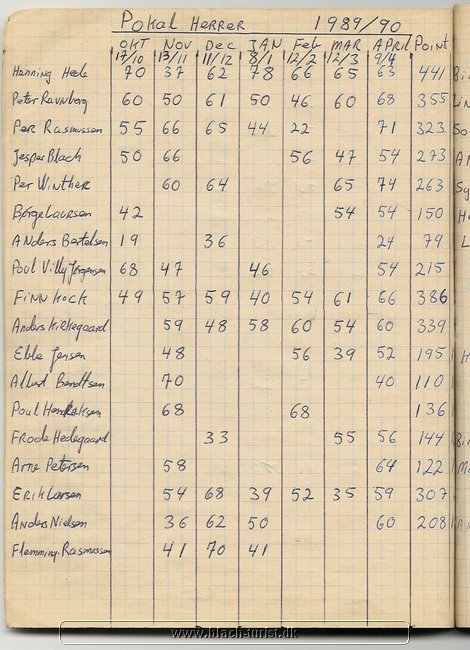 Pokal Herrer 1989/90
OKT NOV Dec JAN Feb MAR APRIL Point
17/10 13/11 11/12 8/1 12/2 12/3 9/4
Henning Hede 70 37 62 78 66 65 63 441
Peter Ravnborg 60 50 61 50 46 60 68 355
Per Rasmussen 55 66 65 44 22 71 323
Jesper Blach 50 66 56 47 54 273
Per Winther 60 64 65 74 263
Børge Laursen 42 54 54 150
Anders Bertelsen 19 36 24 79
Poul Villy Jørgensen 68 47 46 54 215
Finn Kock 49 57 59 40 54 61 66 386
Anders Kirkegaard 59 48 58 60 54 60 339
Ebbe Jensen 48 56 39 52 195
Albert Bendtsen 70 40 110
Poul Henriksen 68 68 136
Frode Hedegaard 33 55 56 144
Arne Petersen 58 64 122
Erik Larsen 54 68 39 52 35 59 307
Anders Nielsen 36 62 50 60 208
Flemming Rasmussen 41 70 41
www.blachturist.dk